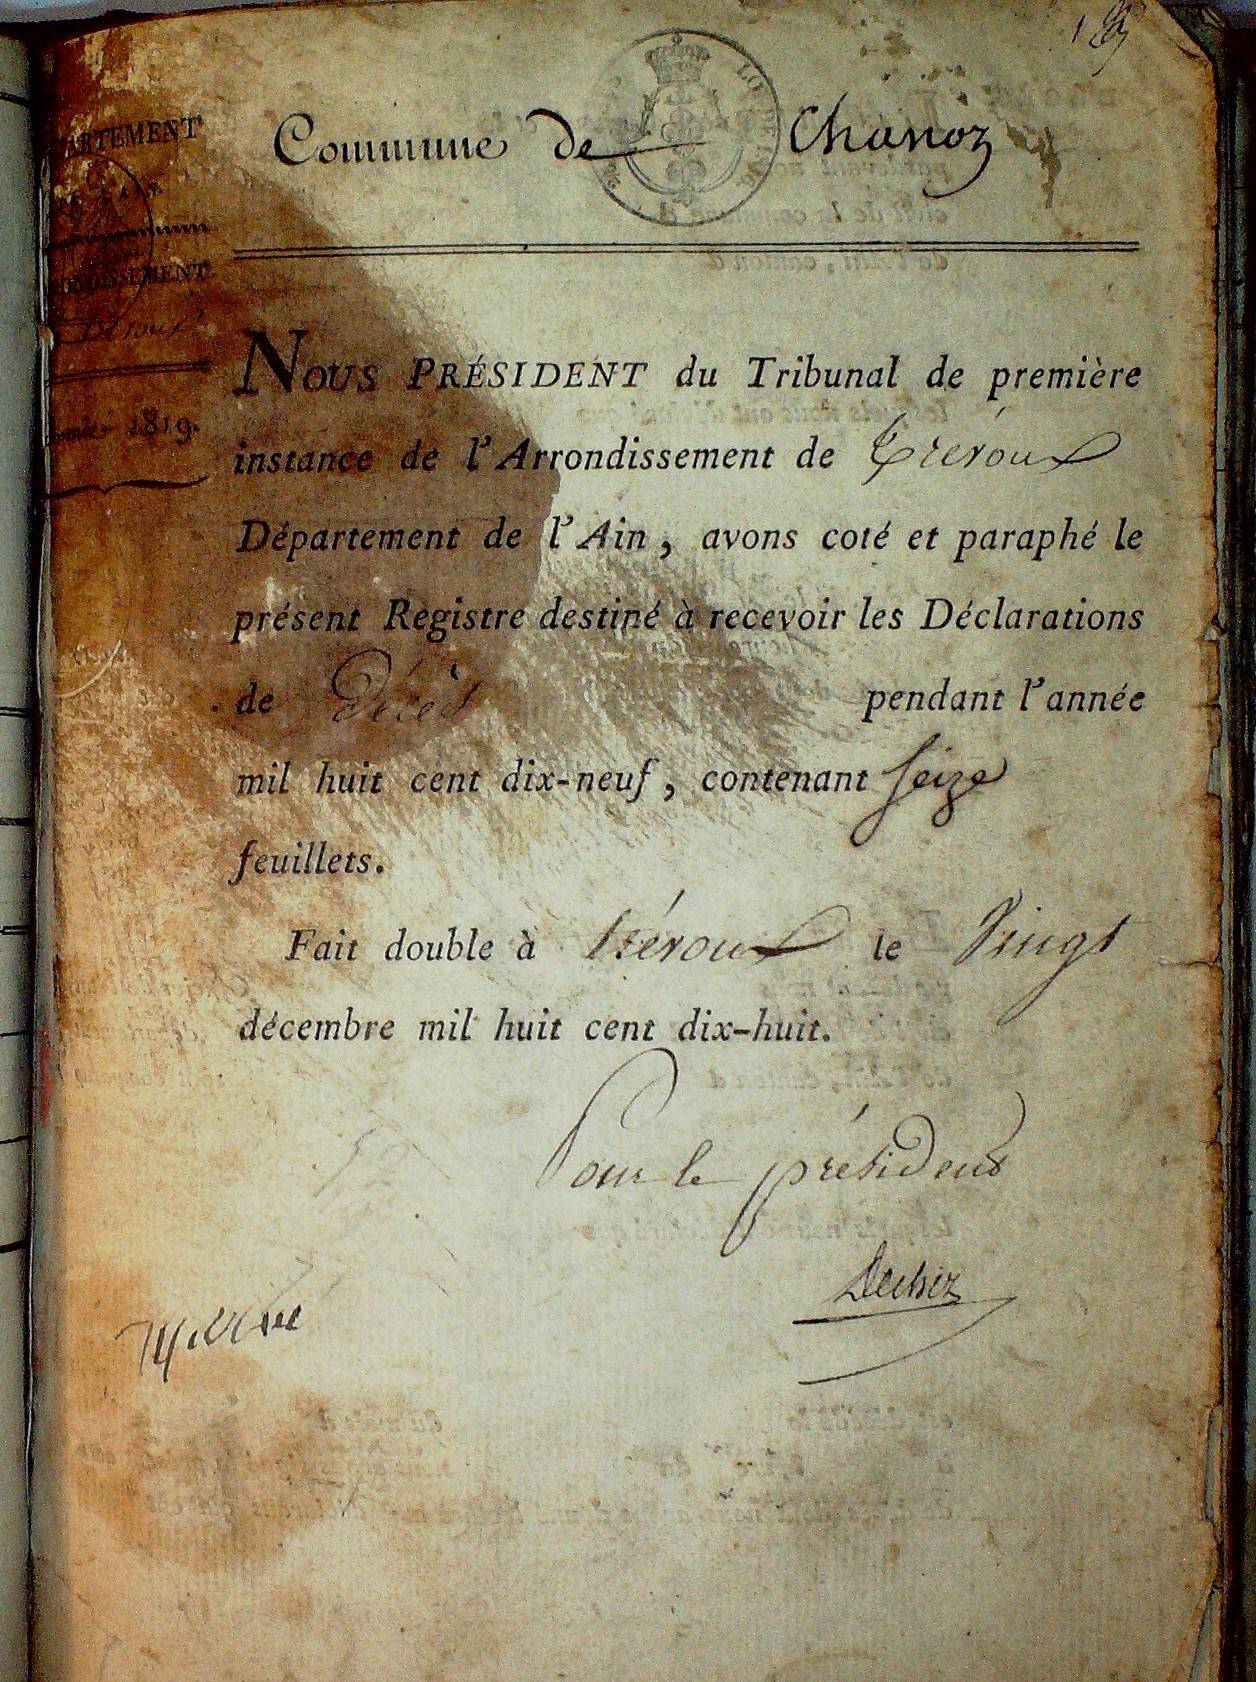 Commune de Chanoz
ARTEMENT
1819.
NOUS PRÉSIDENT du Tribunal de première
instance de l'Arrondissement de Trévoux
Département de l'Ain, avons coté et paraphé le
présent Registre destiné à recevoir les Déclarations
de Décès pendant l'année
mil huit cent dix-neuf, contenant seize
feuillets.
Fait double à Trévoux le Vingt
décembre mil huit cent dix-huit.
Pour le président